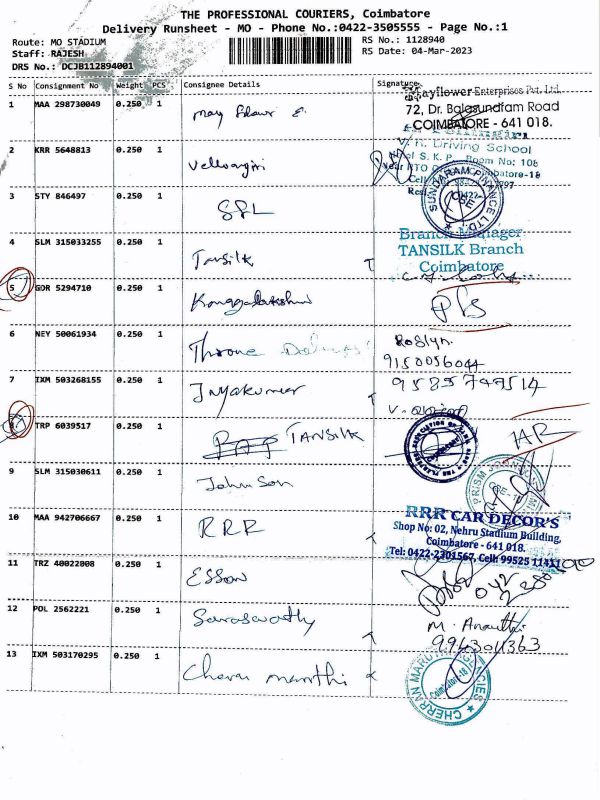 THE PROFESSIONAL COURIERS, Coimbatore
Delivery Runsheet - MO - Phone No.:0422-3505555 - Page No.:1
Route: MO STADIUM
RS No.: 1128940
Staff: RAJESH
RS Date: 04-Mar-2023
DRS No.: DCJB112894001
S No Consignment No Weight PCS Consignee Details Signature
Mayflower Enterprises Pvt. Ltd.
72, Dr. Balasundram Road
COIMBATORE - 641 018.
1 MAA 298730049 0.250 1
Driving School
Room No: 108
2 KRR 5648813 0.250 1 Vellingiri
SUNDARAM FINANCE LTD
3 STY 846497 0.250 1 SFL
Branch Manager
TANSILK Branch
Coimbatore
4 SLM 315033255 0.250 1 Tansilk
5 GDR 5294710 0.250 1
6 NEY 50061934 0.250 1 Throne
Roslyn
9150056044
7 IXM 503268155 0.250 1 Jayakumar
9585747514
8 TRP 6039517 0.250 1 TANSILK
9 SLM 315030611 0.250 1 Johnson
10 MAA 942706667 0.250 1 RRR
RRR CAR DECOR'S
Shop No: 02, Nehru Stadium Building,
Coimbatore - 641 018.
Tel: 0422-2301567, Cell: 99525 11411
11 TRZ 40022008 0.250 1
12 POL 2562221 0.250 1 Saraswathy
M. Ananthi
9963011363
13 IXM 503170295 0.250 1
CHERRAN MARUTHI AGENCIES
Coimbatore-18